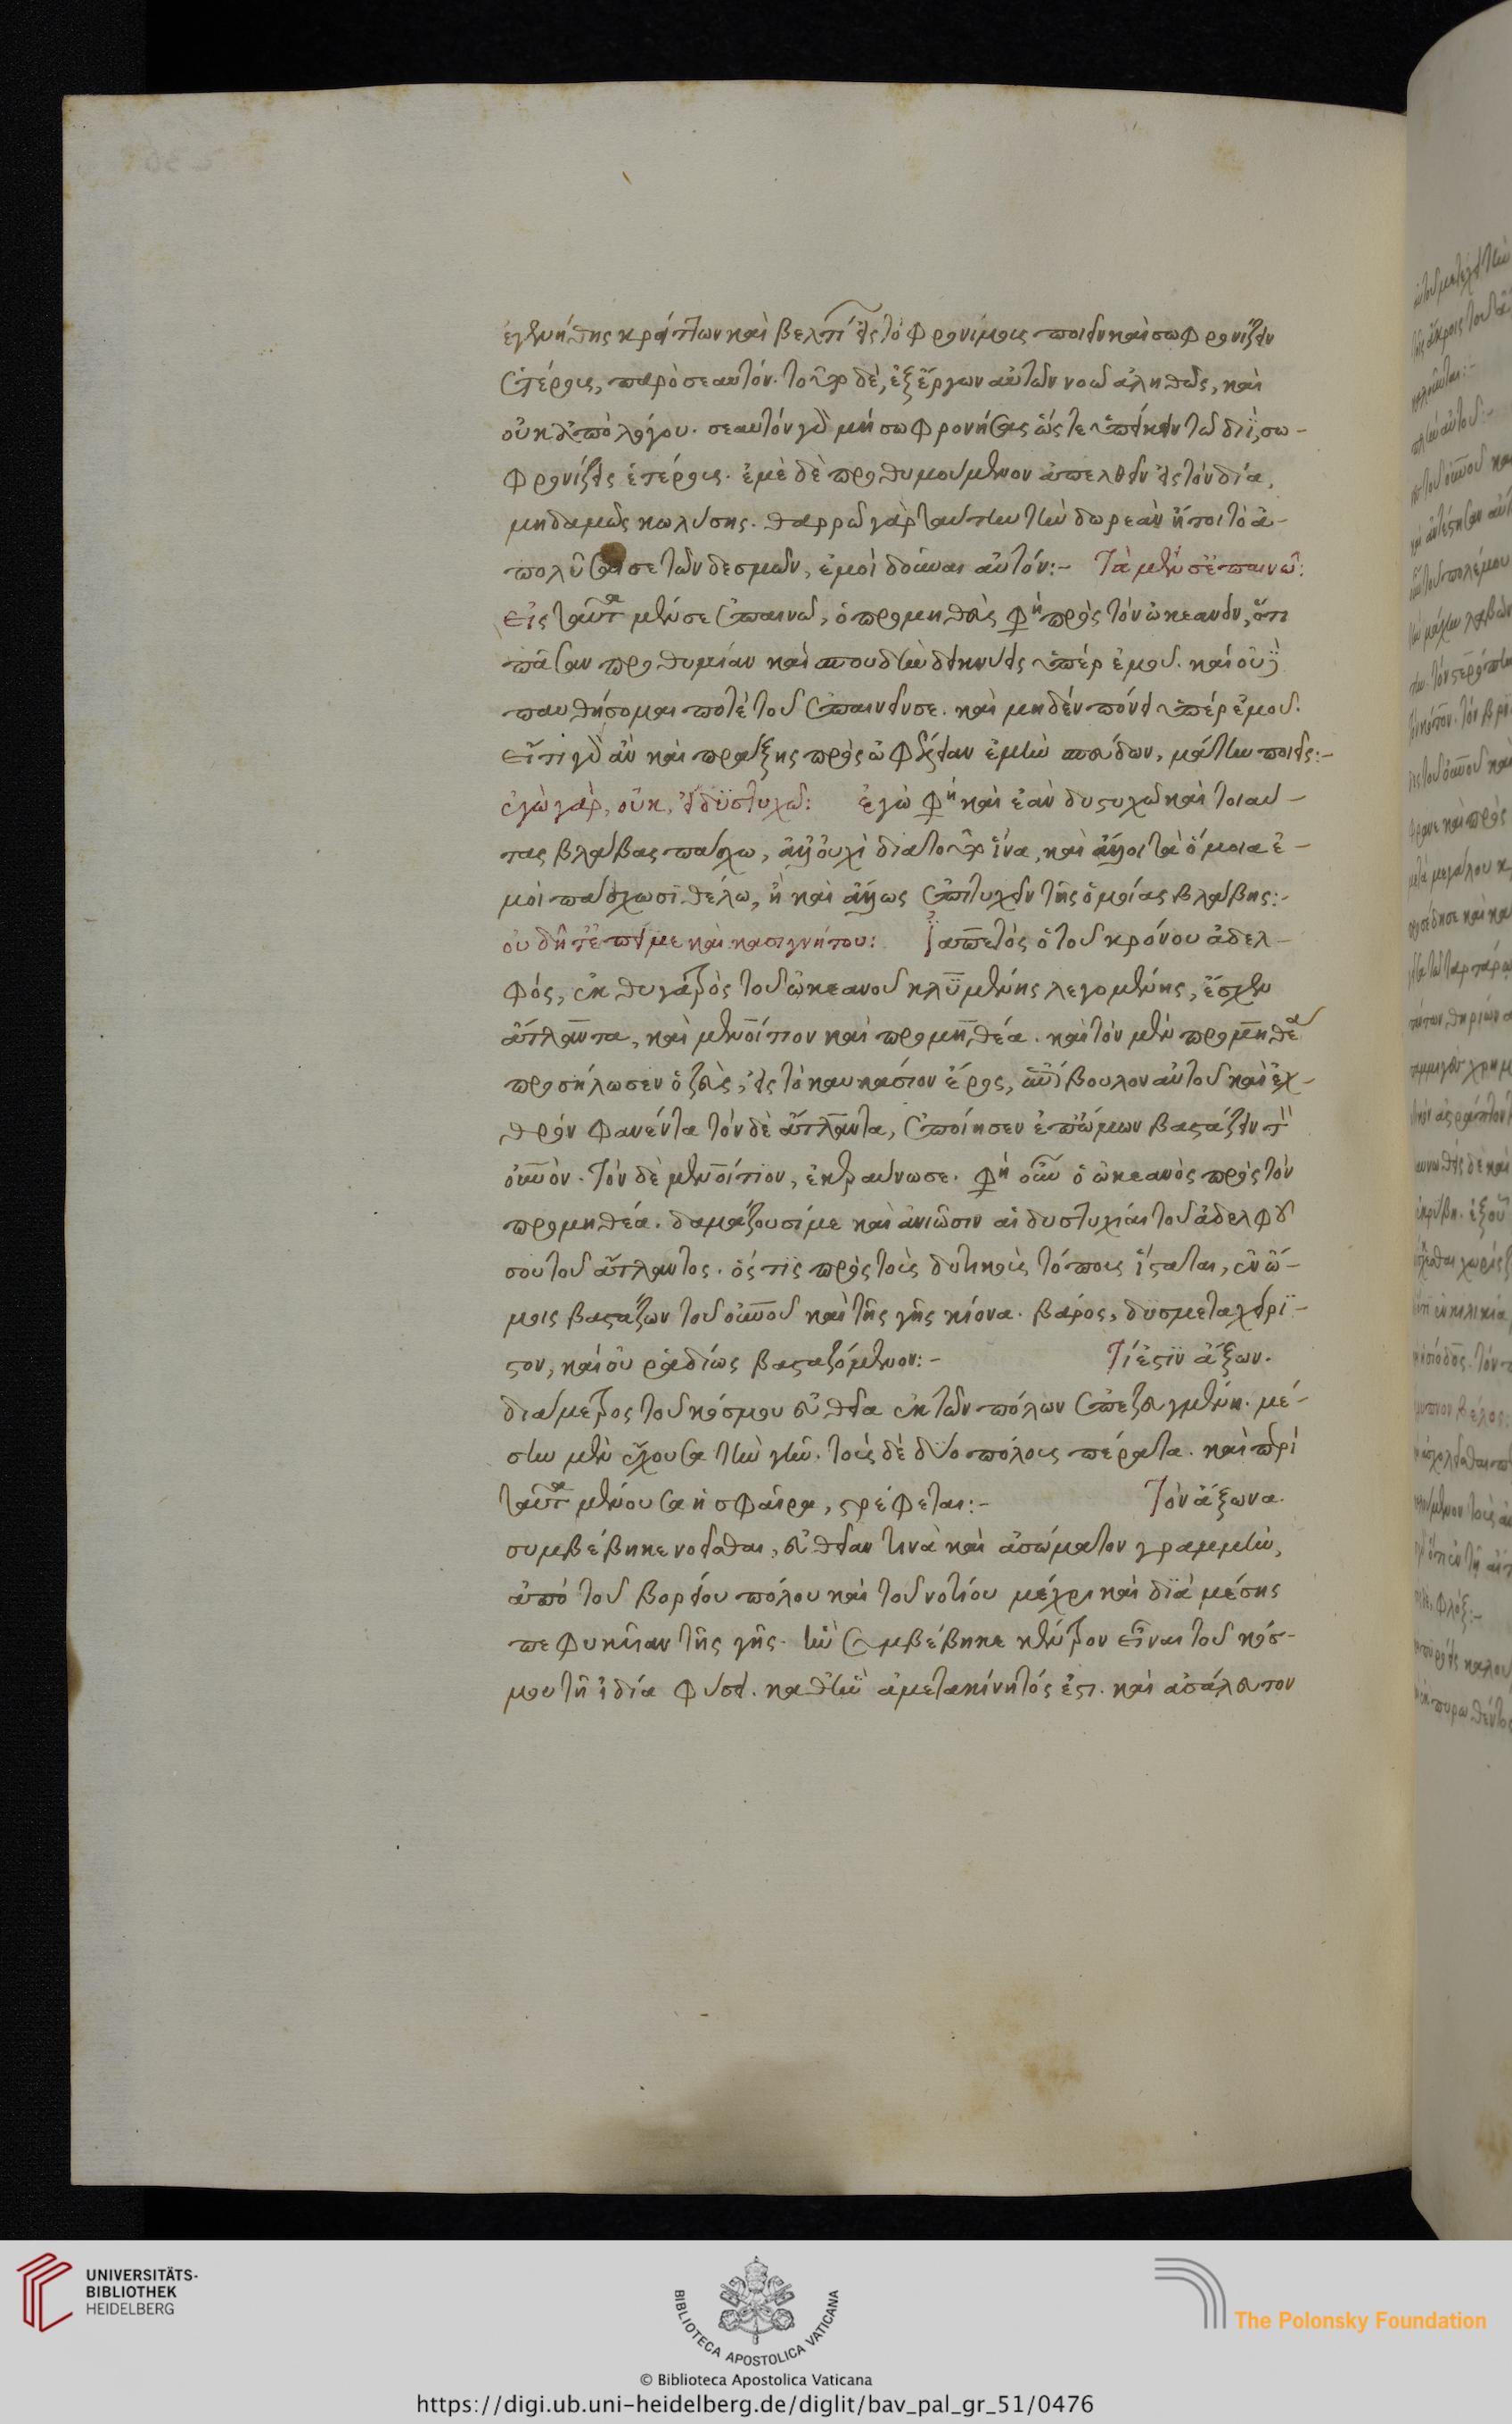 ἐγεννήθης κρείττων καὶ βελτίων εἰς τὸ φρονίμους ποιεῖν καὶ σωφρονίζειν
ἑτέρους, παρὸ σεαυτόν. τοῦτο δὲ, ἐξ ἔργων αὐτῶν νοῶ ἀληθῶς, καὶ
οὐκ ἀπὸ λόγου. σεαυτὸν γὰρ μὴ σωφρονήσας ὥστε ὑπείκειν τῷ διῒ, σω-
φρονίζεις ἑτέρους. ἐμὲ δὲ προθυμούμενον ἀπελθεῖν εἰς τὸν δία,
μηδαμῶς κωλύσῃς. θαρρῶ γὰρ ταύτην τὴν δωρεὰν ἤτοι τὸ ἀ-
πολῦσαι σε τῶν δεσμῶν, ἐμοὶ δοῦναι αὐτόν:- Τὰ μέν σ' ἐπαινῶ:
εἰς ταῦτα μέν σε ἐπαινῶ, ὁ προμηθεὺς φη πρὸς τὸν ὠκεανόν, ὅτι
πᾶσαν προθυμίαν καὶ σπουδὴν δεικνύεις ὑπὲρ ἐμοῦ. καὶ οὐ
παυθήσομαι ποτὲ τοῦ ἐπαινεῖν σε. καὶ μηδὲν πόνει ὑπὲρ ἐμοῦ.
εἴτι γὰρ ἂν καὶ πράξῃς πρὸς ὠφέλειαν ἐμὴν σπεύδων, μάτην ποιεῖς:-
ἐγὼ γὰρ, οὐκ, εἰ δυστυχῶ: ἐγὼ φη καὶ ἐὰν δυστυχῶ καὶ τοιαύ-
τας βλάβας πάσχω, ἀλλ' οὐχὶ διατοῦτο ἵνα, καὶ ἄλλοι τὰ ὅμοια ἐ-
μοὶ πάσχωσι θέλω, ἢ καὶ ἄλλως ἐπιτυχεῖν τῆς ὁμοίας βλάβης:-
οὐ δῆτ' ἐπεί με καὶ κασιγνήτου: Ἰαπετὸς ὁ τοῦ κρόνου ἀδελ-
φός, ἐκ θυγατρὸς τοῦ ὠκεανοῦ κλυμένης λεγομένης, ἔσχεν
ἄτλαντα, καὶ μενοίτιον καὶ προμηθέα. καὶ τὸν μὲν προμηθέα
προσήλωσεν ὁ ζεὺς, εἰς τὸ καυκάσιον ὄρος, ἀντίβουλον αὐτοῦ καὶ ἐχ-
θρὸν φανέντα τὸν δὲ ἄτλαντα, ἐποίησεν ἐπ' ὤμων βαστάζειν τὸν
οὐνον. τὸν δὲ μενοίτιον, ἐκεραύνωσε. φη οὖν ὁ ὠκεανὸς πρὸς τὸν
προμηθέα. δαμάζουσί με καὶ ἀνιῶσιν αἱ δυστυχίαι τοῦ ἀδελφοῦ
σου τοῦ ἄτλαντος. ὅς τις πρὸς τοὺς δυτικοὺς τόπους ἵσταται, ἐν ὤ-
μοις βαστάζων τοῦ οὐνοῦ καὶ τῆς γῆς κίονα. βάρος, δυσμεταχείρι-
στον, καὶ οὐ ῥαδίως βασταζόμενον:- Τί ἐστιν ἄξων.
διάμετρος τοῦ κόσμου εὐθεῖα ἐκ τῶν πόλων ἐπεζευγμένη. μέ-
σην μὲν ἔχουσα τὴν γῆν. τοὺς δὲ δύο πόλους πέρατα. καὶ περὶ
ταῦτα μένουσα ἡ σφαῖρα, στρέφεται:- Τὸν ἄξωνα.
συμβέβηκε νοεῖσθαι, εὐθεῖαν τινὰ καὶ ἀσώματον γραμμὴν,
ἀπὸ τοῦ βορείου πόλου καὶ τοῦ νοτίου μέχρι καὶ διὰ μέσης
πεφυκυῖαν τῆς γῆς. ἣν συμβέβηκε κέντρον εἶναι τοῦ κόσ-
μου τῇ ἰδίᾳ φύσει. καθ' ἣν ἀμετακίνητός ἐστι. καὶ ἀσάλευτον
UNIVERSITÄTS-
BIBLIOTHEK
HEIDELBERG
BIBLIOTECA APOSTOLICA VATICANA
The Polonsky Foundation
© Biblioteca Apostolica Vaticana
https://digi.ub.uni-heidelberg.de/diglit/bav_pal_gr_51/0476